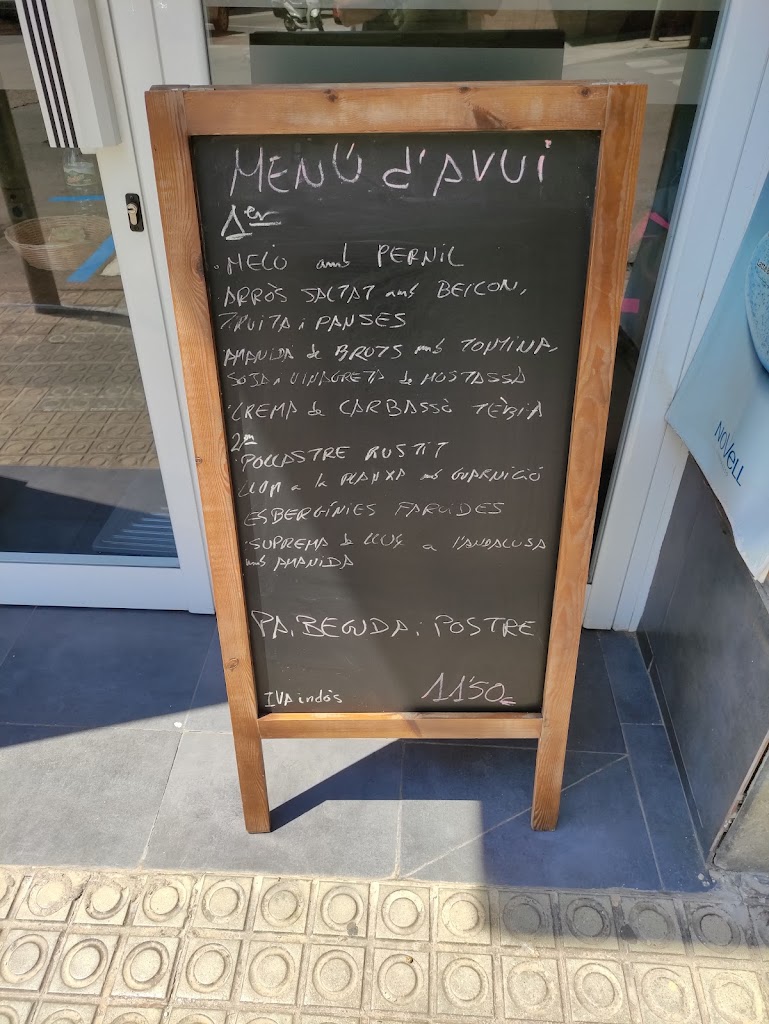 MENÚ d'AVUI
1er
·MELO amb PERNIL
·ARRÒS SALTAT amb BEICON,
TRUITA i PANSES
·AMANIDA de BROTS amb TONYINA,
SOJA i VINAGRETA de MOSTASSA
·CREMA de CARBASSÓ TÈBIA
2on
·POLLASTRE RUSTIT
·LLOM a la PLANXA amb GUARNICIÓ
ESBERGÍNIES FARCIDES
·SUPREMA de LLUÇ a l'ANDALUSA
amb AMANIDA
PA, BEGUDA i POSTRE
IVA inclòs 11'50€
NOVELL